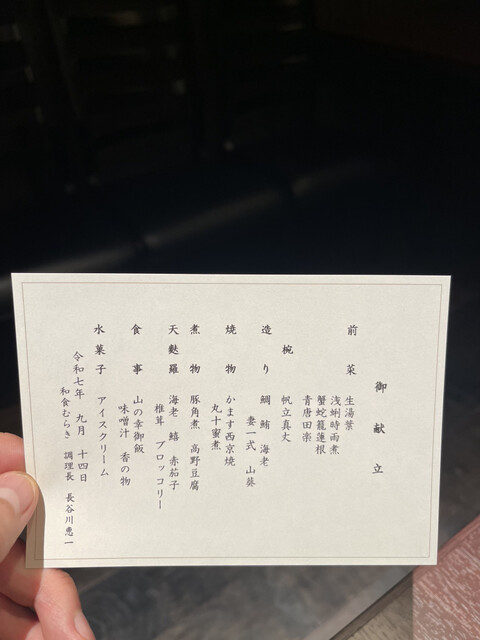 御献立
前菜 生湯葉
浅蜊時雨煮
蟹蛇籠蓮根
青唐田楽
椀 帆立真丈
造り 鯛 鮪 海老
妻一式 山葵
焼物 かます西京焼
丸十蜜煮
煮物 豚角煮 高野豆腐
天麩羅 海老 鱚 赤茄子
椎茸 ブロッコリー
食事 山の幸御飯
味噌汁 香の物
水菓子 アイスクリーム
令和七年 九月 十四日
和食むらき 調理長 長谷川恵一